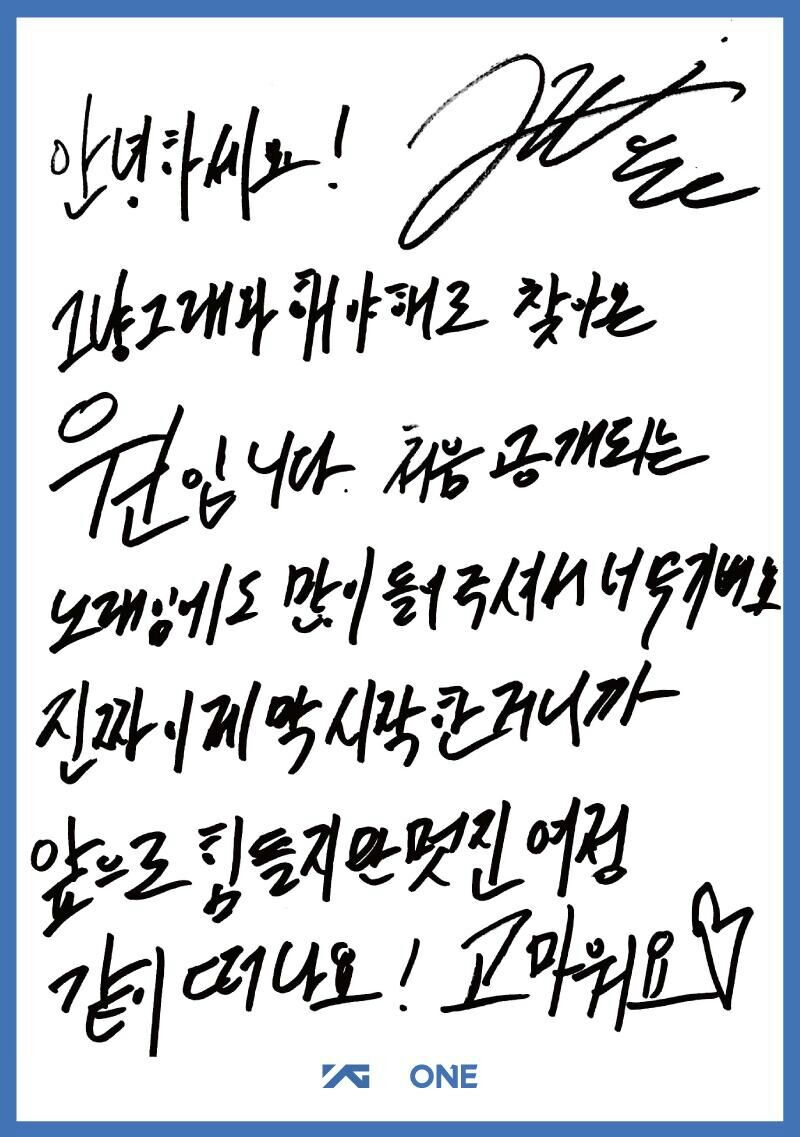 안녕하세요!
그냥그래와 해야해로 찾아온
원입니다. 처음 공개되는
노래임에도 많이 들어주셔서 너무기뻐요
진짜 이제 막 시작한거니까
앞으로 힘들지만 멋진 여정
같이 떠나요! 고마워요♡
YG ONE